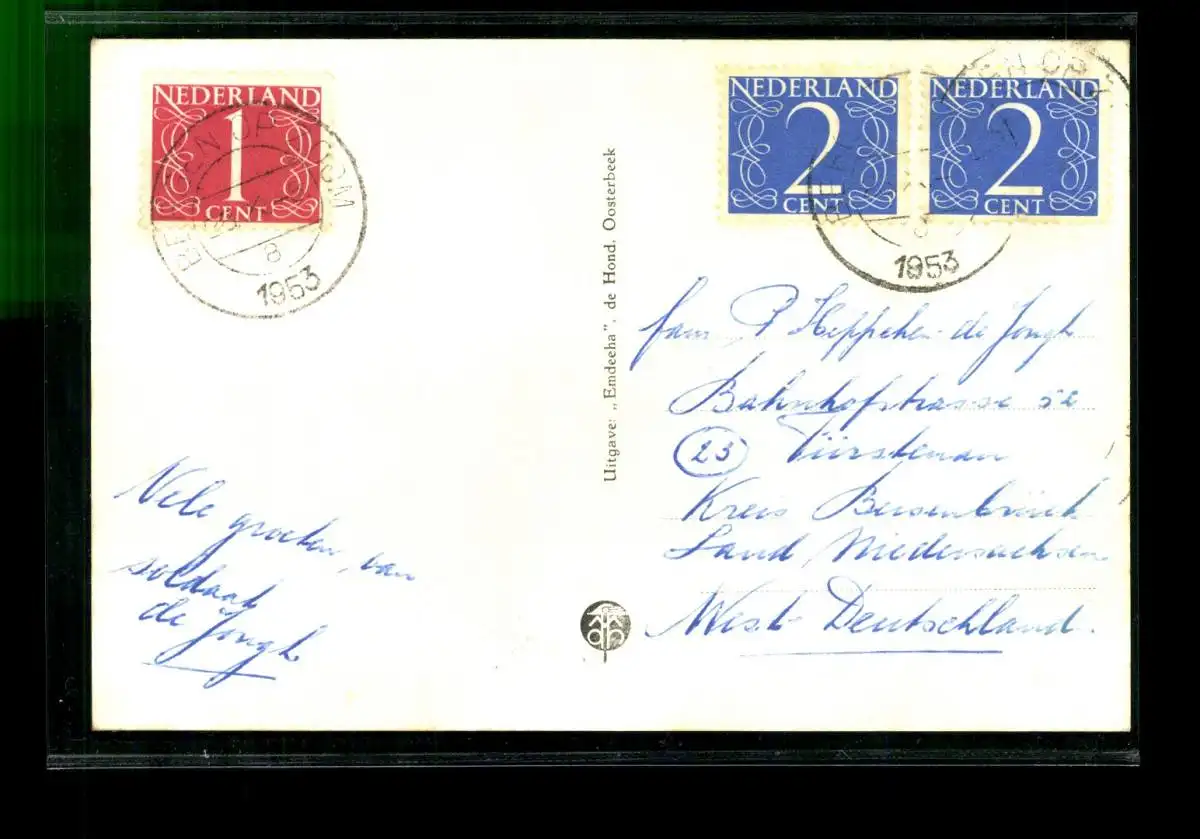 NEDERLAND
1
CENT
BERGEN OP ZOOM
8
1953
NEDERLAND
2
CENT
NEDERLAND
2
CENT
1953
Uitgave: „Emdeeha”, de Hond, Oosterbeek
Fam P Heppchen-de Jongh
Bahnhofstrasse
(23) Fürstenau
Kreis Bersenbrück
Land Niedersachsen
West-Deutschland.
Vele groeten van
soldaat
de Jongh